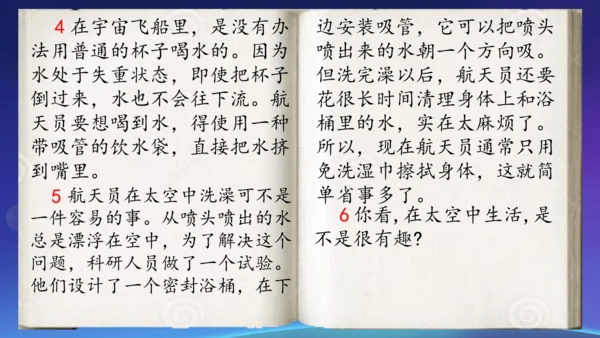 4 在宇宙飞船里，是没有办
法用普通的杯子喝水的。因为
水处于失重状态，即使把杯子
倒过来，水也不会往下流。航
天员要想喝到水，得使用一种
带吸管的饮水袋，直接把水挤
到嘴里。
5 航天员在太空中洗澡可不是
一件容易的事。从喷头喷出的水
总是漂浮在空中，为了解决这个
问题，科研人员做了一个试验。
他们设计了一个密封浴桶，在下
边安装吸管，它可以把喷头
喷出来的水朝一个方向吸。
但洗完澡以后，航天员还要
花很长时间清理身体上和浴
桶里的水，实在太麻烦了。
所以，现在航天员通常只用
免洗湿巾擦拭身体，这就简
单省事多了。
6 你看，在太空中生活，是
不是很有趣？